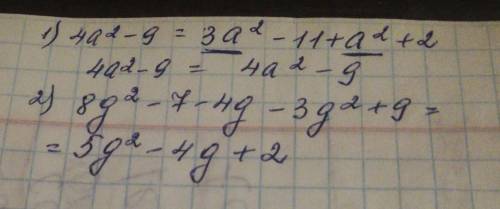 1) 4a² - 9 = 3a² - 11 + a² + 2
4a² - 9 = 4a² - 9
2) 8g² - 7 - 4g - 3g² + 9 =
= 5g² - 4g + 2